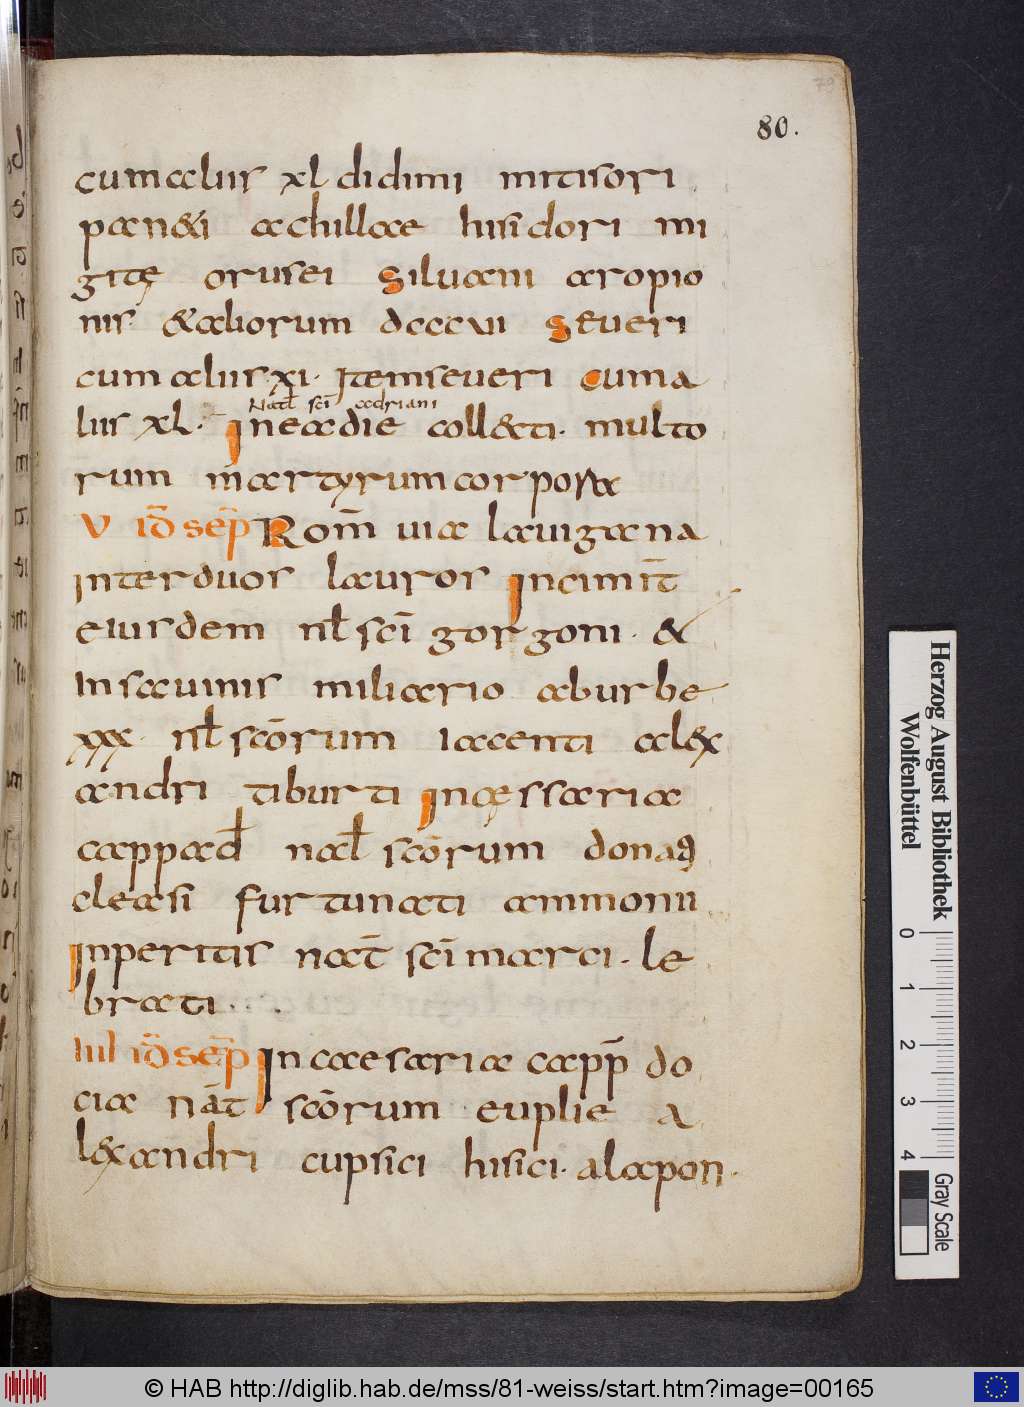 80.
cum aliis xl didimi mitisori
panEti achillae hisidori mi
gitę orusei Siluani aropio
nis &aliorum dcccvi Seueri
cum aliis xi. Item seueri Cuma
Natł sc̄i adriani
liis xl. Ineadie coll&ti. multo
rum martyrum corpora
V ID̄ SEP̄ Rom̄ uia lauigana
interduos lauros Incimit̄
eiusdem nł sc̄i gorgoni. &
Insauinis miliario aburbe
xxx. nł sc̄orum Iacenti al&x
andri tiburti Incęssaria
cappad̄ nał sc̄orum dona
cleasi furtunati ammonii
Inperitis nat̄ sc̄i marci. le
brati.
IIII ID̄ SEP̄ In caesaria capp̄ do
cia nāt sc̄orum euplie a
l&xandri cupsici hisici. alapon.
Herzog August Bibliothek
Wolfenbüttel
0 1 2 3 4
Gray Scale
© HAB http://diglib.hab.de/mss/81-weiss/start.htm?image=00165